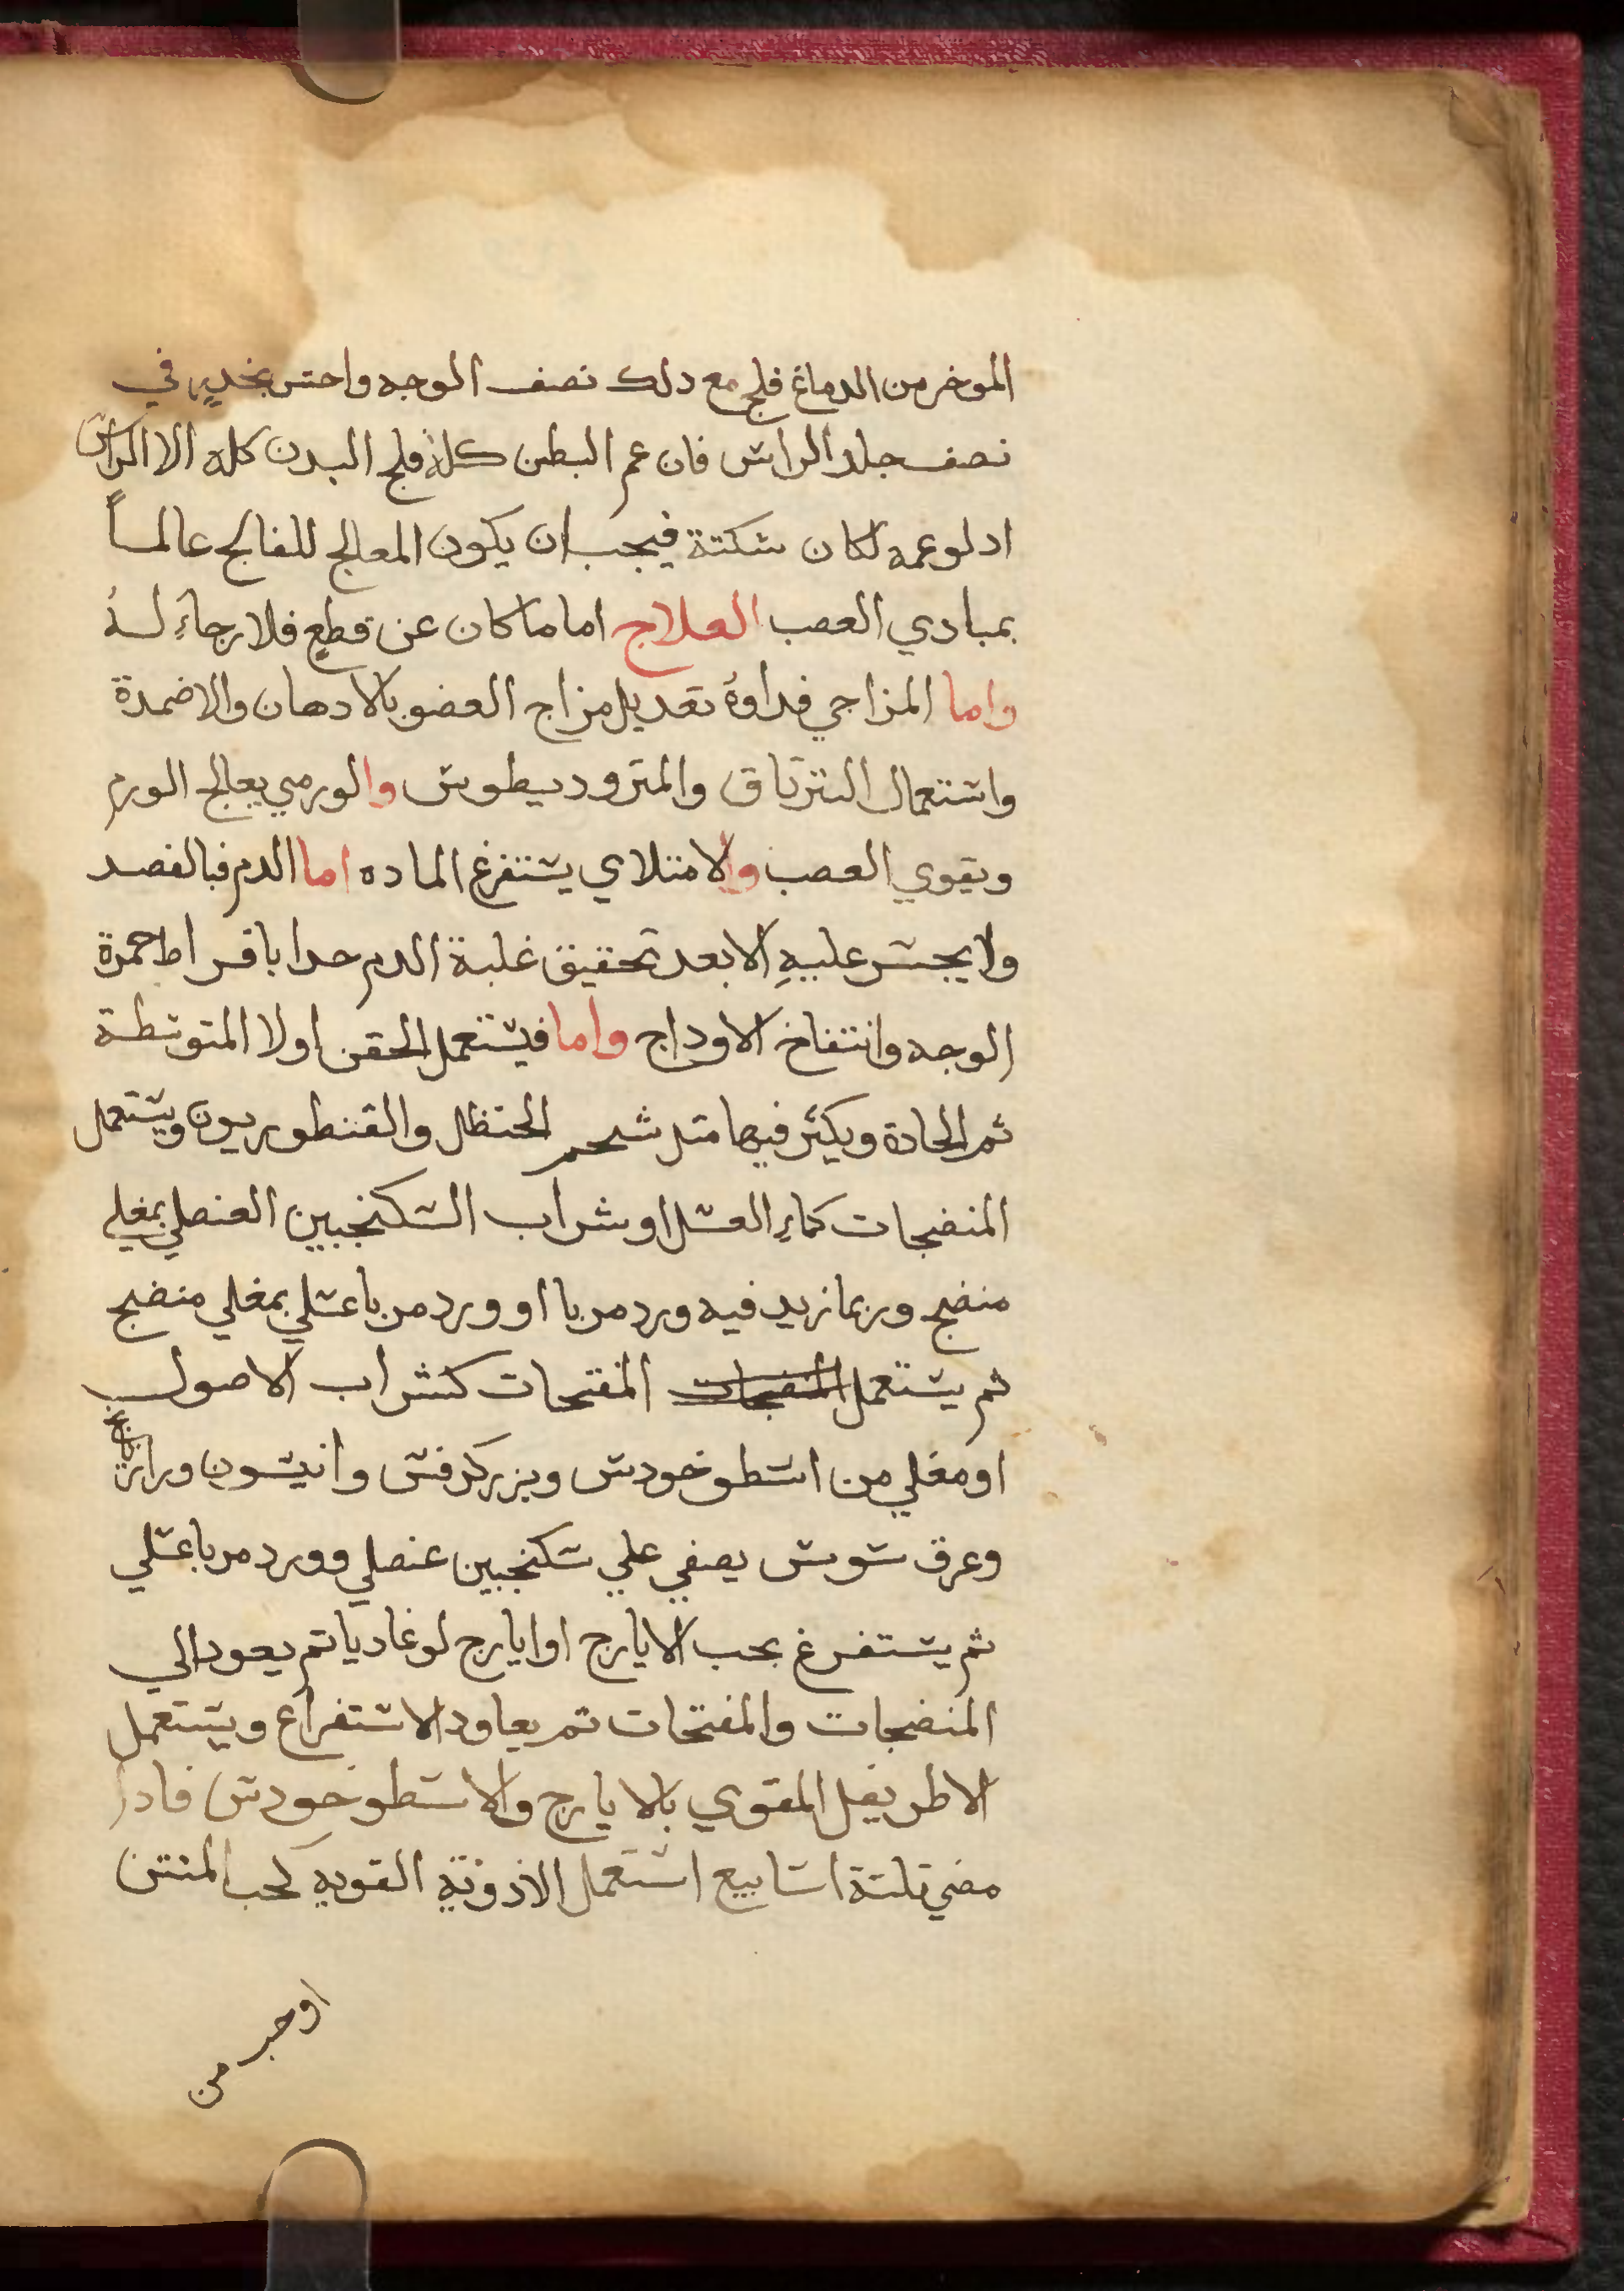 الموخر من الدماغ فلج مع دلك نصف الوجه واحس بخدرٍ في
نصف جلد الراس فان عم البطن كلهُ فلج البدن كله الا الراس
ادلوعمه لكان سكتة فيجب ان يكون المعالج للفالج عالماً
بمبادي العصب العلاج اما ماكان عن قطعٍ فلا رجاءِ لهُ
واما المزاجي فداوهُ تعديل مزاج العضو بالادهان والاضمدة
واستعمال الترياق والمتروديطوس والورمي يعالج الورم
ويقوي العصب والامتلاي يستفرغ الماده اما الدم فبالفصد
ولا يجسر عليهِ الا بعد تحقيق غلبة الدم حدا بافراط حمرة
الوجه وانتفاخ الاوداج واما فيستعمل الحقن اولا المتوسطة
ثم الحادة ويكثر فيها متل شحم الحنظل والقنطوريون ويستعمل
المنضجات كماءِ العسل او شراب السكنجبين العنصلي بمغلي
منضج وربما زيد فيه ورد مربا او ورد مربا عسلي بمغلي منضج
ثم يستعمل المنضجات المفتحات كشراب الاصول
او مغلي من اسطوخودس وبزر كرفس وانيسون ورازيانج
وعرق سوس يصفي علي سكنجبين عنصلي وورد مربا عسلي
ثم يستفرغ بحب الايارج او ايارج لوغاديا تم يعود الي
المنضجات والمفتحات تم يعاود الاستفراغ ويستعمل
الاطريفل المقوي بالايارج والاسطوخودس فادا
مضي تلتة اسابيع استعمل الادوية القويه كحب المنتن
او حب
من